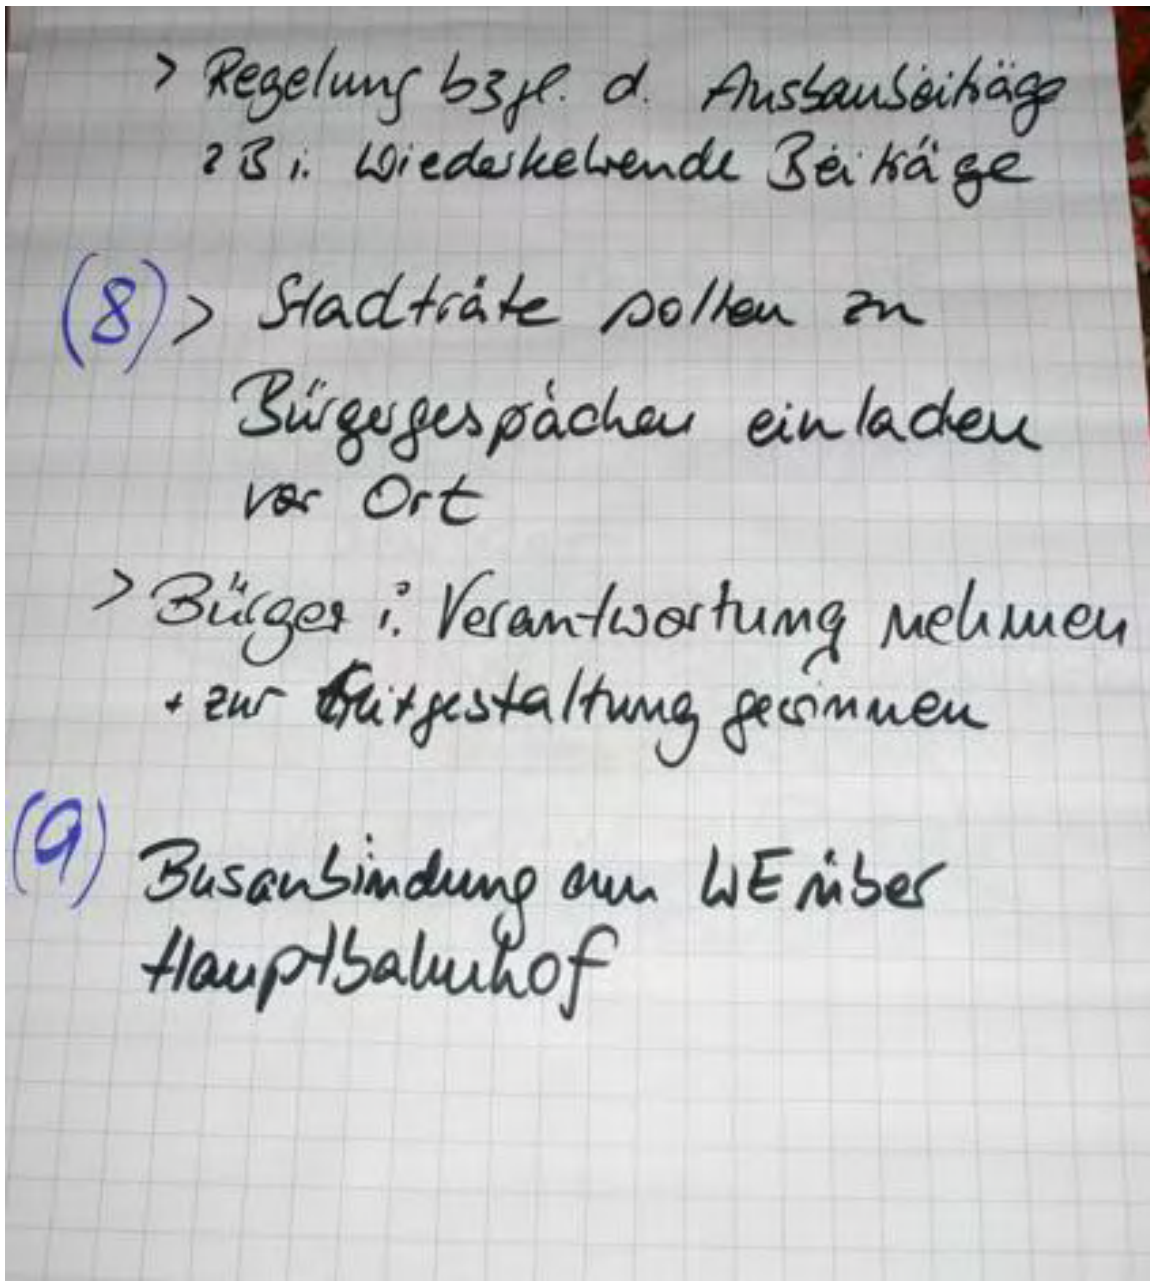 > Regelung bzgl. d. Ausbaubeiträge
z B i. Wiederkehrende Beiträge
(8) > Stadträte sollten zu
Bürgergesprächen einladen
vor Ort
> Bürger i. Verantwortung nehmen
+ zur Mitgestaltung gewinnen
(9) Busanbindung am WE über
Hauptbahnhof